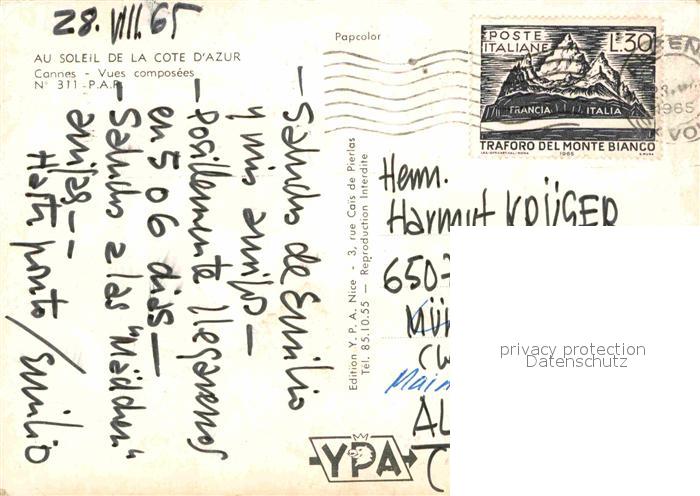 28.VIII.65
AU SOLEIL DE LA COTE D'AZUR
Cannes - Vues composées
N° 311 - P.A.P.
— Saludos de Emilio
y mis amigos —
— Posiblemente llegaremos
en 5 o 6 dias —
— Saludos a las "Mädchen"
amigas —
Hasta pronto / Emilio
Papcolor
Edition Y. P. A. Nice - 3, rue Caïs de Pierlas
Tél. 85.10.55 — Reproduction Interdite
YPA
POSTE
ITALIANE
L.30
FRANCIA
ITALIA
TRAFORO DEL MONTE BIANCO
1965
1965
Herrn.
Harmut KRÜGER
650
MÜ
Main
AL
privacy protection
Datenschutz